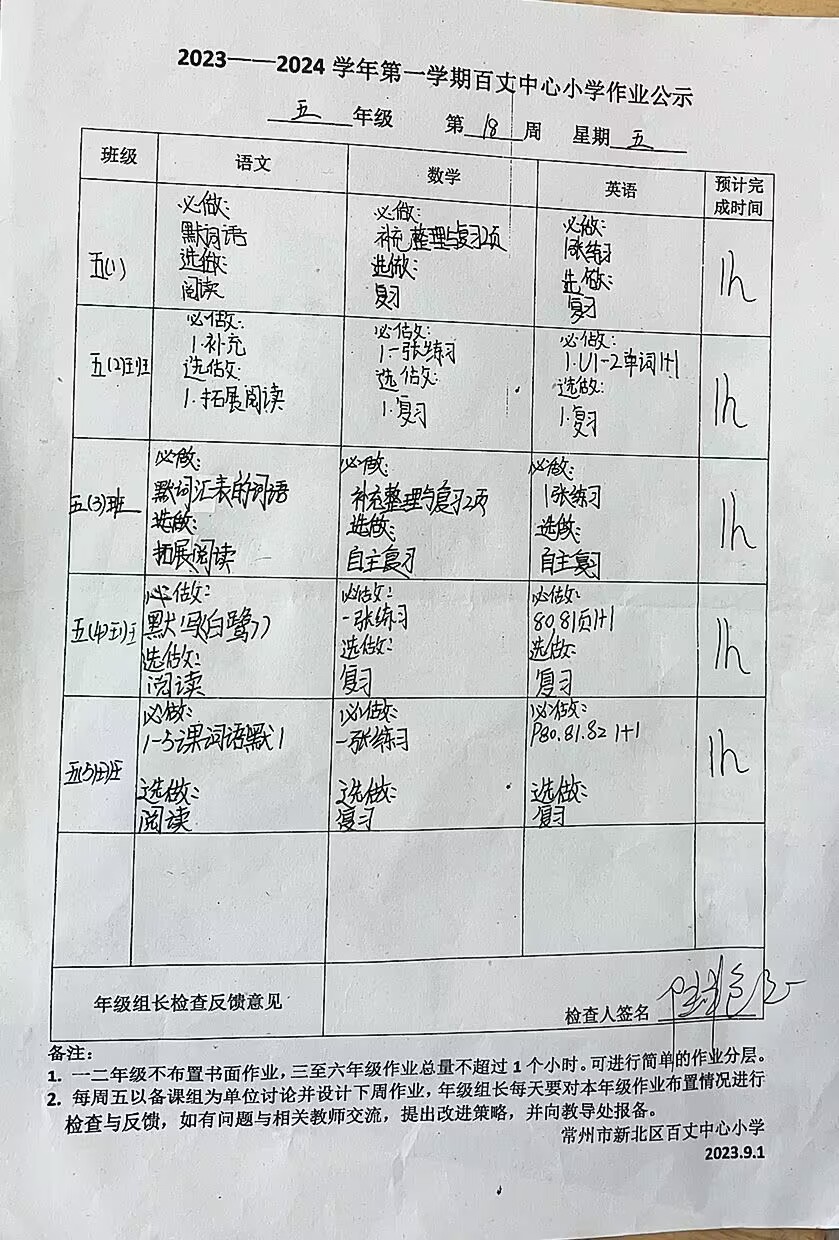 2023——2024 学年第一学期百丈中心小学作业公示
五 年级 第 18 周 星期 五
班级 语文 数学 英语 预计完成时间
五(1)
必做:
默词语
选做:
阅读
必做:
补充整理与复习2页
选做:
复习
必做:
1张练习
选做:
复习
1h
五(2)班
必做:
1.补充
选做:
1.拓展阅读
必做:
1.一张练习
选做:
1.复习
必做:
1.U1-2单词1+1
选做:
1.复习
1h
五(3)班
必做:
默词汇表的词语
选做:
拓展阅读
必做:
补充整理与复习2页
选做:
自主复习
必做:
1张练习
选做:
自主复习
1h
五(4)班
必做:
默写《白鹭》
选做:
阅读
必做:
一张练习
选做:
复习
必做:
80.81页1+1
选做:
复习
1h
五(5)班
必做:
1-5课词语默1
选做:
阅读
必做:
一张练习
选做:
复习
必做:
P80.81.82 1+1
选做:
复习
1h
年级组长检查反馈意见
检查人签名
备注:
1. 一二年级不布置书面作业，三至六年级作业总量不超过 1 个小时。可进行简单的作业分层。
2. 每周五以备课组为单位讨论并设计下周作业，年级组长每天要对本年级作业布置情况进行
检查与反馈，如有问题与相关教师交流，提出改进策略，并向教导处报备。
常州市新北区百丈中心小学
2023.9.1